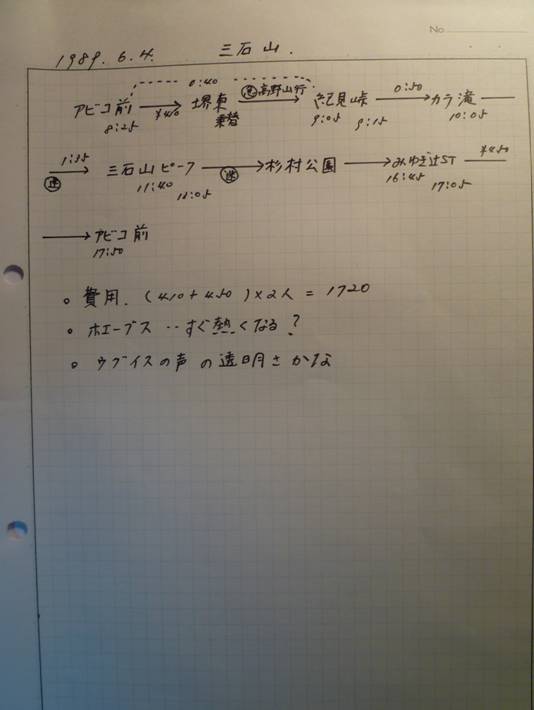 No.
1989. 6. 4. 三石山.
0:40
アビコ前 → 堺東 → 紀見峠 0:50 → カラ滝 →
¥410 急 高野山行
8:25 乗替 9:05 9:15 10:05
1:35
迷 → 三石山ピーク → 迷 杉村公園 → みゆき辻ST ¥450
11:40 12:05 16:45 17:05
→ アビコ前
17:50
○ 費用. (410+450)×2人 = 1720
○ ホエーブス ‥すぐ熱くなる?
○ ウグイスの声の透明さかな